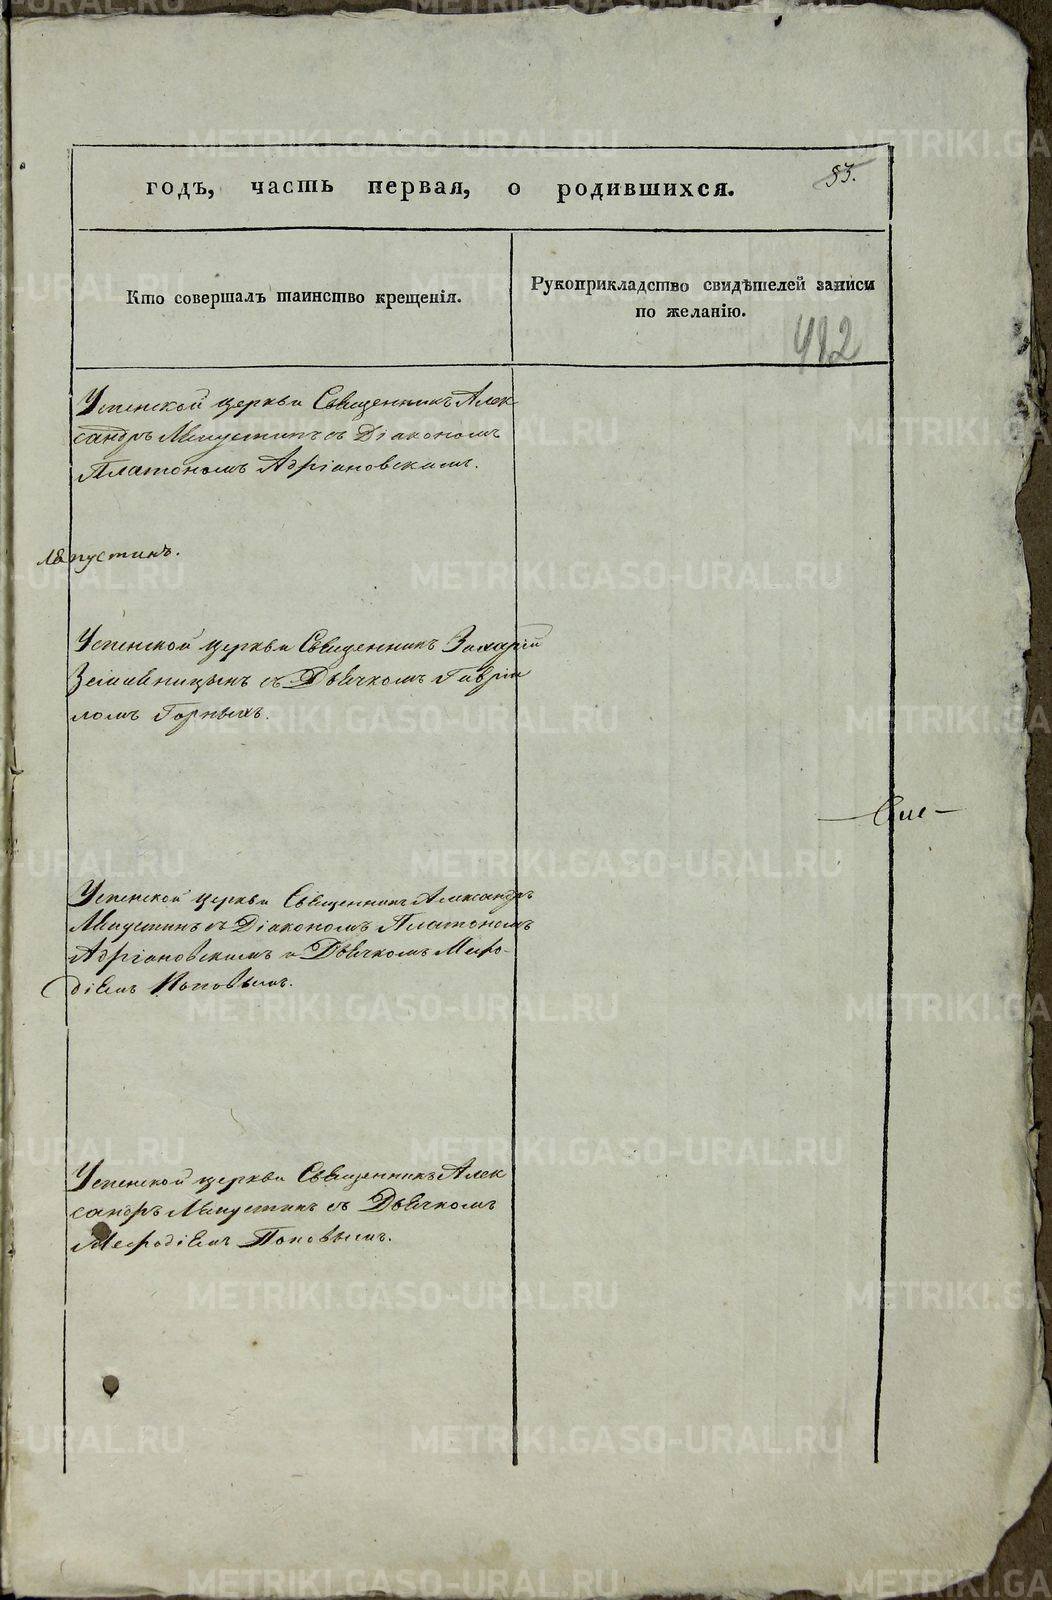 годъ, часть первая, о родившихся.
53.
Кто совершалъ таинство крещенія.
Рукоприкладство свидѣтелей записи
по желанію.
412
Успенской церкви Священникъ Алек
сандръ Мпустинъ съ Діакономъ
Платономъ Адріановскимъ.
пустинъ.
Успенской церкви Священникъ Захарій
съ Дьячкомъ Гаврі
ломъ Горныхъ.
Успенской церкви Священникъ Александръ
съ Діакономъ Платономъ
Адріановскимъ и Дьячкомъ Меѳо-
діемъ Поповымъ.
Успенской церкви Священникъ Алек
сандръ съ Дьячкомъ
Меѳодіемъ Поповымъ.
METRIKI.GASO-URAL.RU